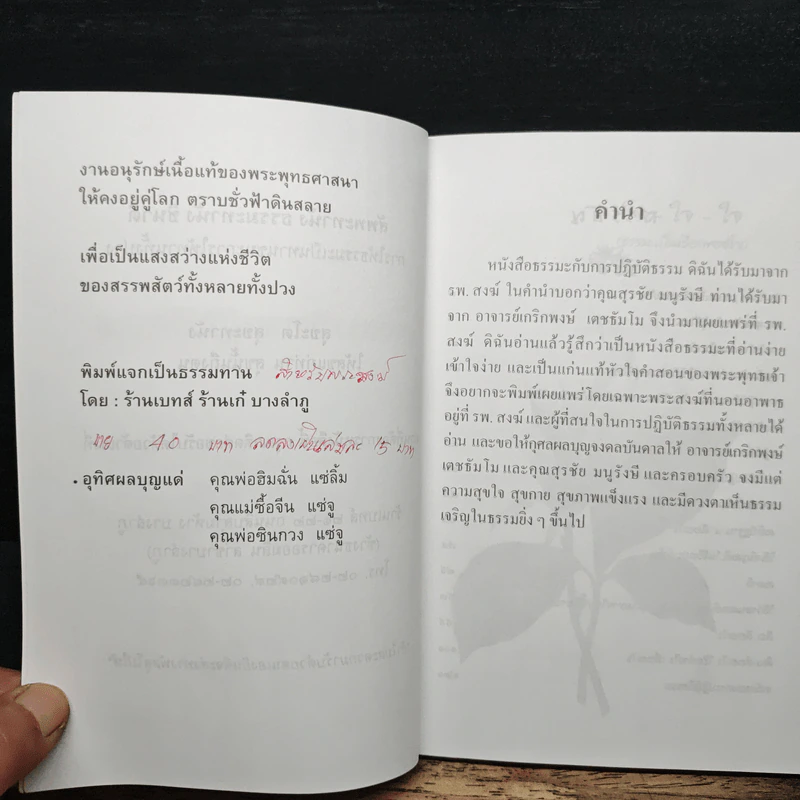 งานอนุรักษ์เนื้อแท้ของพระพุทธศาสนา
ให้คงอยู่คู่โลก ตราบชั่วฟ้าดินสลาย
เพื่อเป็นแสงสว่างแห่งชีวิต
ของสรรพสัตว์ทั้งหลายทั้งปวง
พิมพ์แจกเป็นธรรมทาน สำหรับพระสงฆ์
โดย : ร้านเบทส์ ร้านเก๋ บางลำภู
40 บาท 15 บาท
• อุทิศผลบุญแด่ คุณพ่อฮิมฉั่น แซ่ลิ้ม
คุณแม่ซื้อจีน แซ่จู
คุณพ่อซินกวง แซ่จู
คำนำ
หนังสือธรรมะกับการปฏิบัติธรรม ดิฉันได้รับมาจาก
รพ. สงฆ์ ในคำนำบอกว่าคุณสุรชัย มนูรังษี ท่านได้รับมา
จาก อาจารย์เกริกพงษ์ เตชธัมโม จึงนำมาเผยแพร่ที่ รพ.
สงฆ์ ดิฉันอ่านแล้วรู้สึกว่าเป็นหนังสือธรรมะที่อ่านง่าย
เข้าใจง่าย และเป็นแก่นแท้หัวใจคำสอนของพระพุทธเจ้า
จึงอยากจะพิมพ์เผยแพร่โดยเฉพาะพระสงฆ์ที่นอนอาพาธ
อยู่ที่ รพ. สงฆ์ และผู้ที่สนใจในการปฏิบัติธรรมทั้งหลายได้
อ่าน และขอให้กุศลผลบุญจงดลบันดาลให้ อาจารย์เกริกพงษ์
เตชธัมโม และคุณสุรชัย มนูรังษี และครอบครัว จงมีแต่
ความสุขใจ สุขกาย สุขภาพแข็งแรง และมีดวงตาเห็นธรรม
เจริญในธรรมยิ่ง ๆ ขึ้นไป